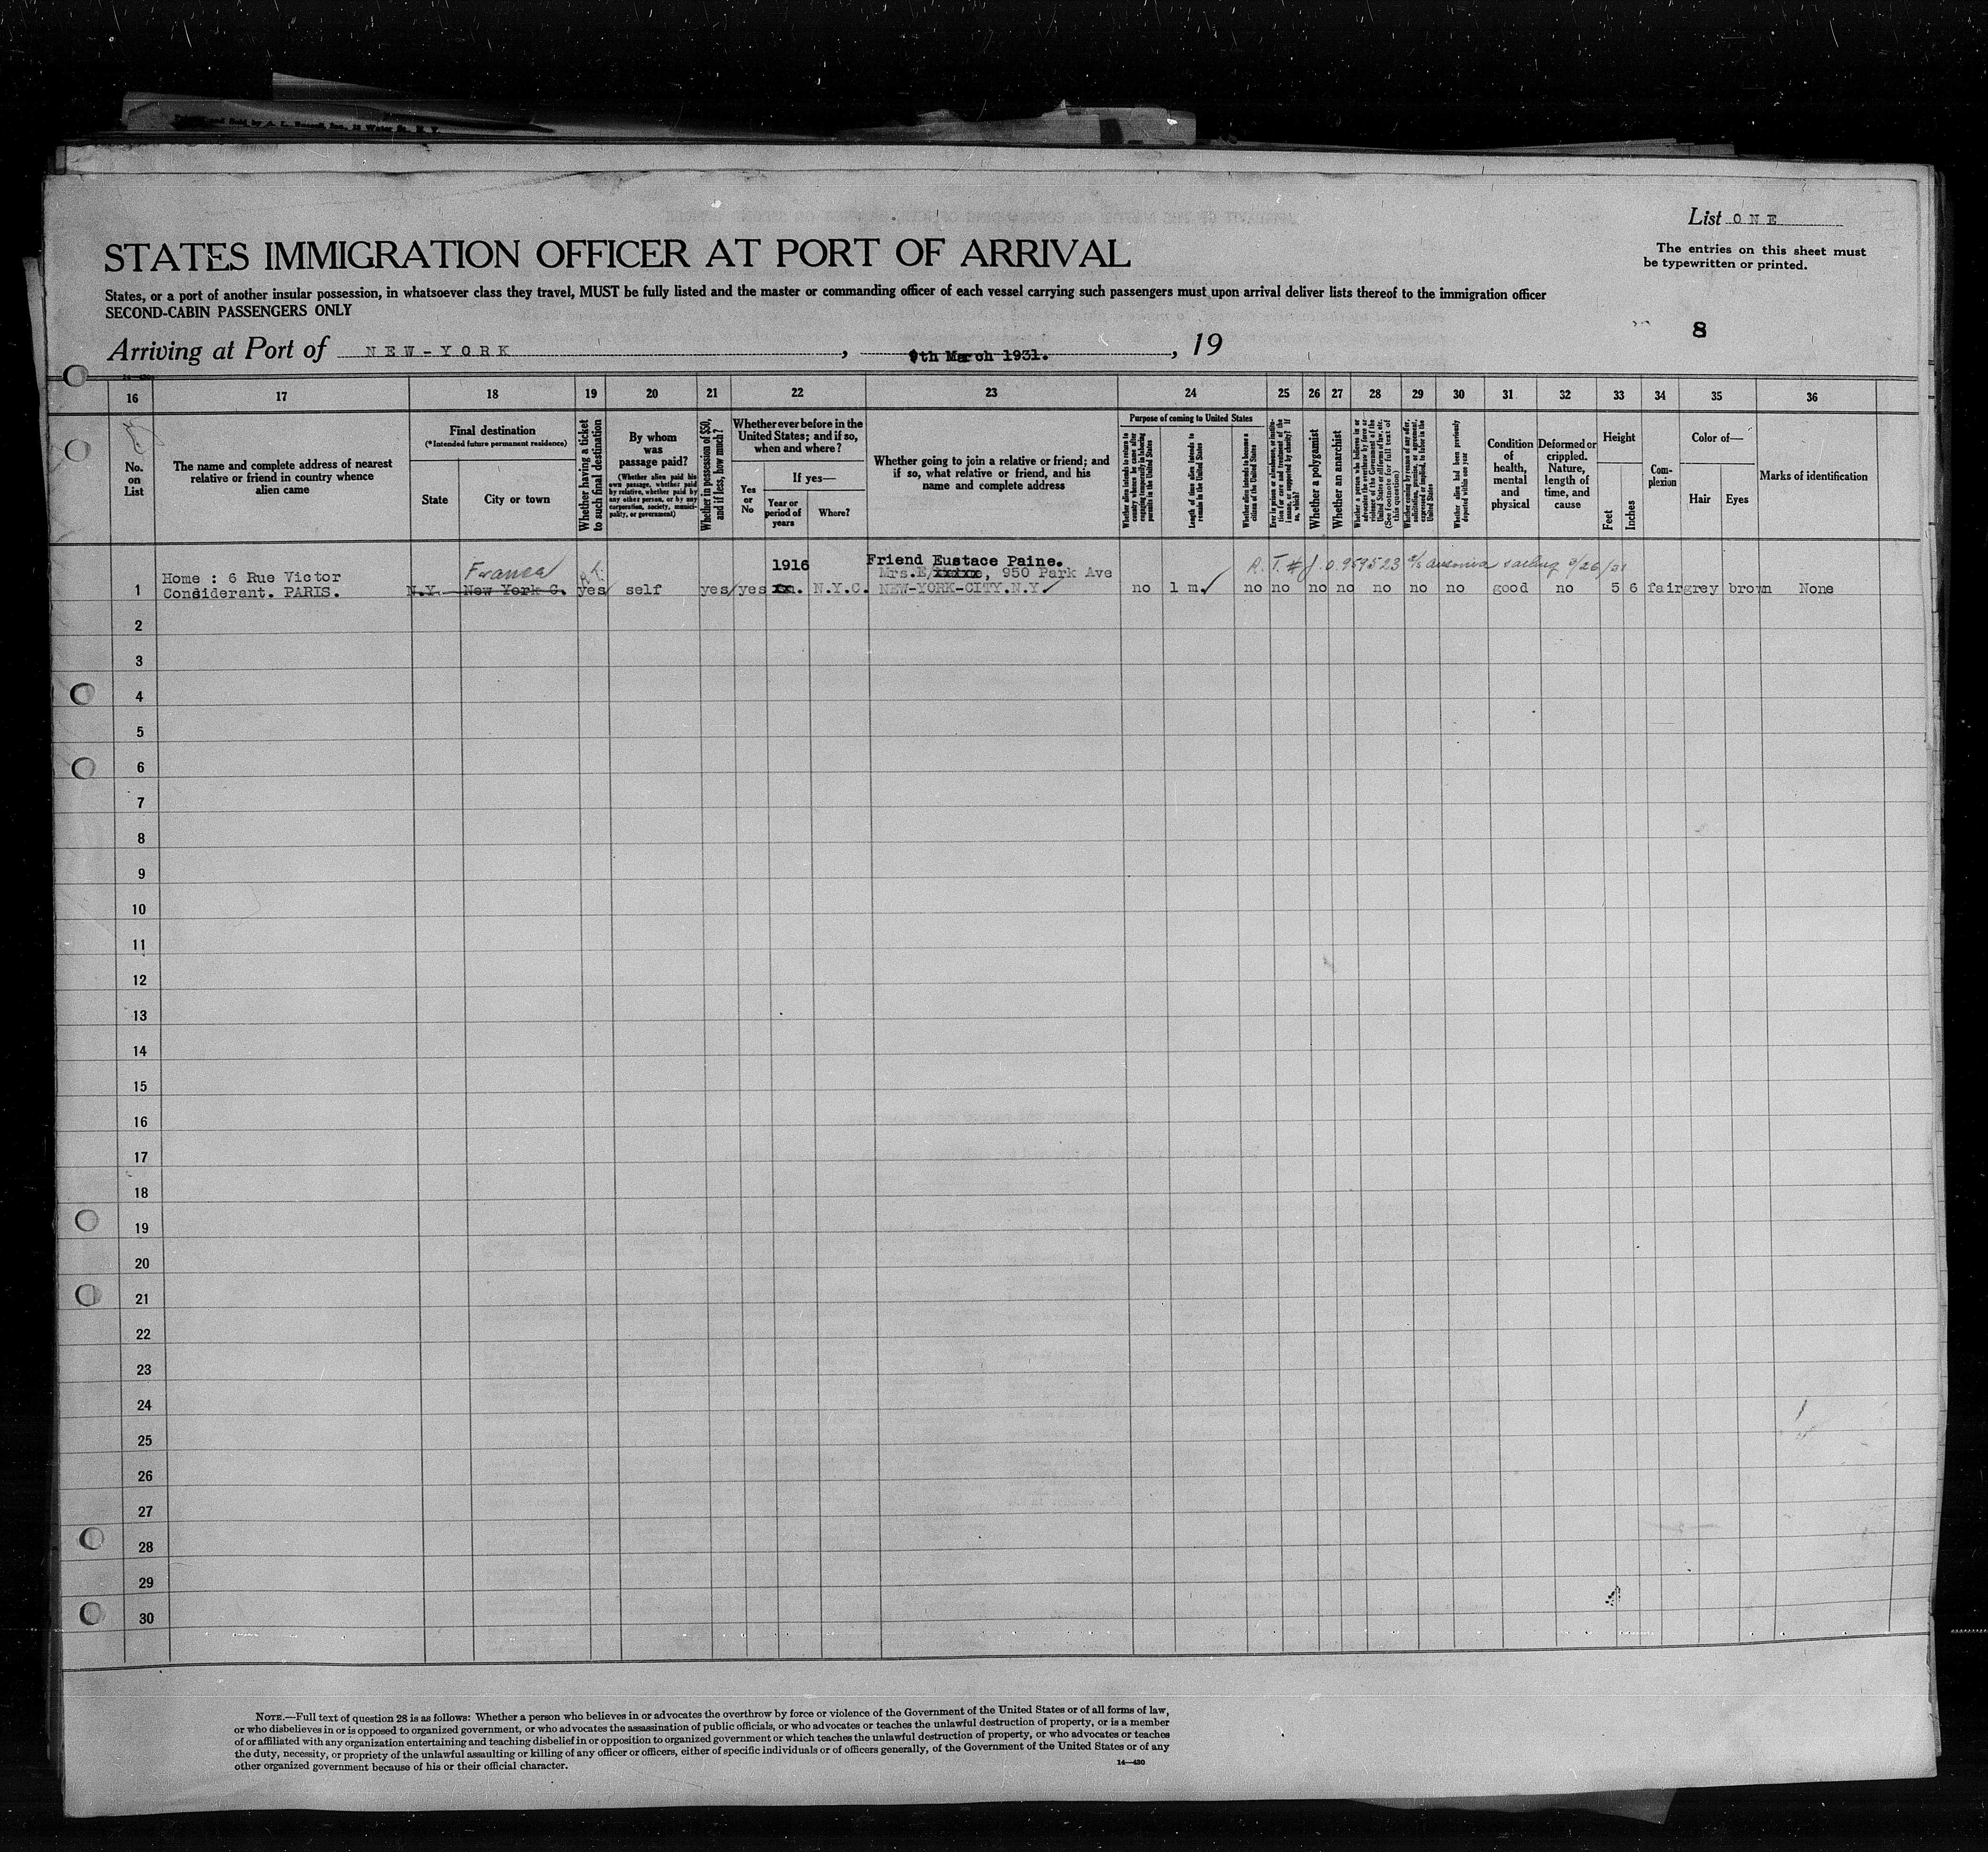 List ONE
The entries on this sheet must
be typewritten or printed.
STATES IMMIGRATION OFFICER AT PORT OF ARRIVAL
States, or a port of another insular possession, in whatsoever class they travel, MUST be fully listed and the master or commanding officer of each vessel carrying such passengers must upon arrival deliver lists thereof to the immigration officer
SECOND-CABIN PASSENGERS ONLY
8
Arriving at Port of NEW-YORK, th March 1931., 19
16 17 18 19 20 21 22 23 24 25 26 27 28 29 30 31 32 33 34 35 36
No.
on
List
The name and complete address of nearest
relative or friend in country whence
alien came
Final destination
(*Intended future permanent residence)
State
City or town
Whether having a ticket
to such final destination
By whom
was
passage paid?
(Whether alien paid his
own passage, whether paid
by relative, whether paid by
any other person, or by any
corporation, society, munici-
pality, or government)
Whether in possession of $50,
and if less, how much?
Whether ever before in the
United States; and if so,
when and where?
Yes
or
No
If yes—
Year or
period of
years
Where?
Whether going to join a relative or friend; and
if so, what relative or friend, and his
name and complete address
Purpose of coming to United States
Whether alien intends to return to
country whence he came after
engaging temporarily in laboring
pursuits in the United States
Length of time alien intends to
remain in the United States
Whether alien intends to become a
citizen of the United States
Ever in prison or almshouse, or institu-
tion for care and treatment of the
insane, or supported by charity? If
so, which?
Whether a polygamist
Whether an anarchist
Whether a person who believes in or
advocates the overthrow by force or
violence of the Government of the
United States or all forms of law, etc.
(See footnote for full text of
this question)
Whether coming by reason of any offer,
solicitation, promise, or agreement,
expressed or implied, to labor in the
United States
Whether alien had been previously
deported within one year
Condition
of
health,
mental
and
physical
Deformed or
crippled.
Nature,
length of
time, and
cause
Height
Feet
Inches
Com-
plexion
Color of—
Hair
Eyes
Marks of identification
1916 Friend Eustace Paine.
France R. T. # sailing
Home : 6 Rue Victor Mrs.E, 950 Park Ave
1 Considerant. PARIS. N.Y. New York C. yes self yes yes N.Y.C. NEW-YORK-CITY.N.Y. no 1 m. no no no no no no no good no 5 6 fair grey brown None
2
3
4
5
6
7
8
9
10
11
12
13
14
15
16
17
18
19
20
21
22
23
24
25
26
27
28
29
30
NOTE.—Full text of question 28 is as follows: Whether a person who believes in or advocates the overthrow by force or violence of the Government of the United States or of all forms of law,
or who disbelieves in or is opposed to organized government, or who advocates the assassination of public officials, or who advocates or teaches the unlawful destruction of property, or is a member
of or affiliated with any organization entertaining and teaching disbelief in or opposition to organized government or which teaches the unlawful destruction of property, or who advocates or teaches
the duty, necessity, or propriety of the unlawful assaulting or killing of any officer or officers, either of specific individuals or of officers generally, of the Government of the United States or of any
other organized government because of his or their official character.
14—430